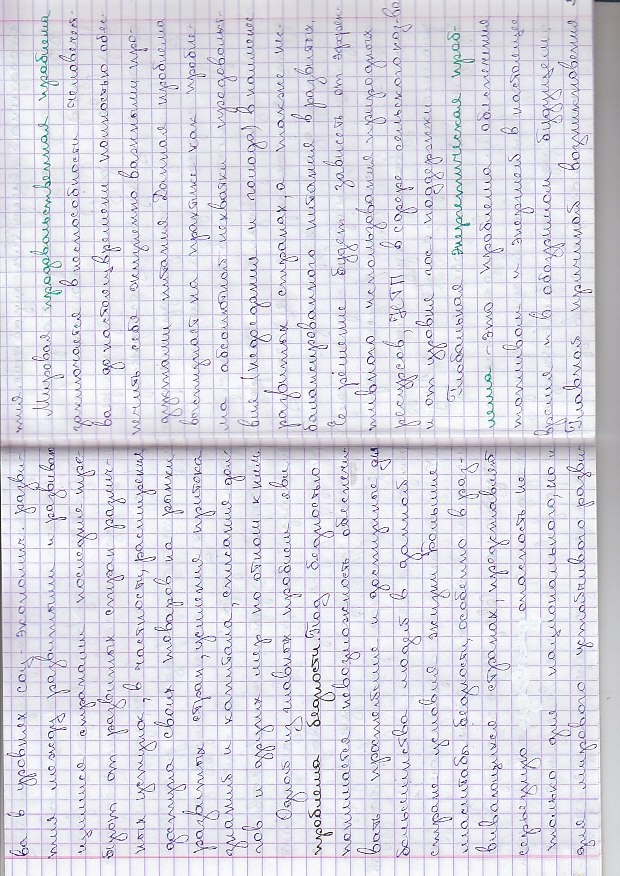 ва в уровнях соц-экономич. разви-
тия между развитыми и развиваю
щимися странами последние тре-
буют от развитых стран различ-
ных уступок, в частности, расширения
доступа своих товаров на рынки
развитых стран, усиления притока
знаний и капитала, списания дол-
гов и других мер по отнош к ним
Одной из главных проблем яви
проблема бедности. Под бедностью
понимается невозможность обеспечи
вать простейшие и доступные для
большинства людей в данной
стране условия жизни. Большие
масштабы бедности, особенно в раз-
вивающихся странах, представляет
серьезную опасность не
только для национального, но и
для мирового устойчивого разви-
тия.
Мировая продовольственная проблема
заключается в неспособности человечест-
ва до настоящ времени полностью обес-
печить себя жизненно важными про-
дуктами питания. Данная проблема
выступает на практике как пробле-
ма абсолютной нехватки продовольст-
вия (недоедания и голода) в наименее
развитых странах, а также нес-
балансированного питания в развитых.
Ее решение будет зависеть от эффек-
тивного использования природных
ресурсов, НТП в сфере сельского хоз-ва
и от уровня гос. поддержки
Глобальная энергетическая проб-
лема - это проблема обеспечения
топливом и энергией в настоящее
время и в обозримом будущем.
Главной причиной возникновения